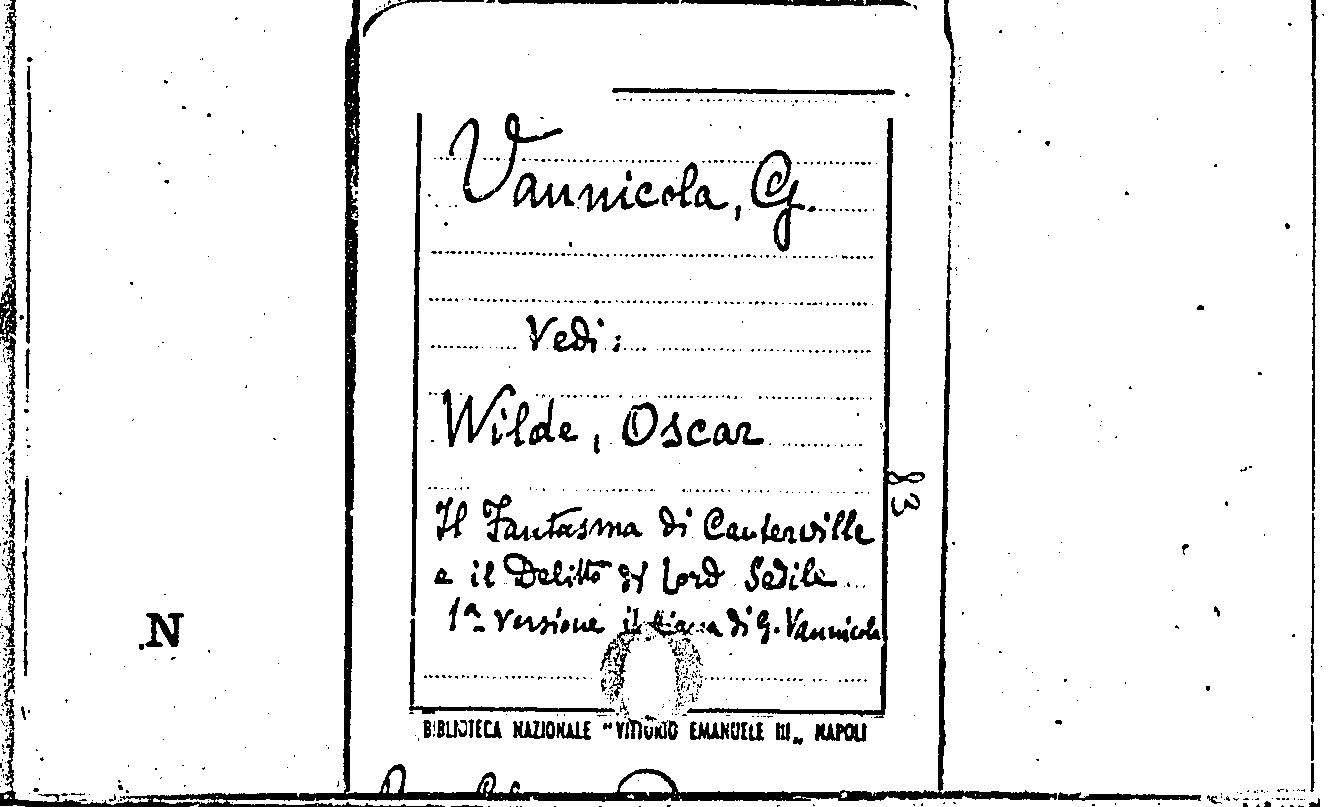 Vannicola, G.
Vedi:
Wilde, Oscar
83
Il Fantasma di Canterville
e il Delitto di Lord Sedile
1ª versione italiana di G. Vannicola
N
BIBLIOTECA NAZIONALE "VITTORIO EMANUELE III„ NAPOLI